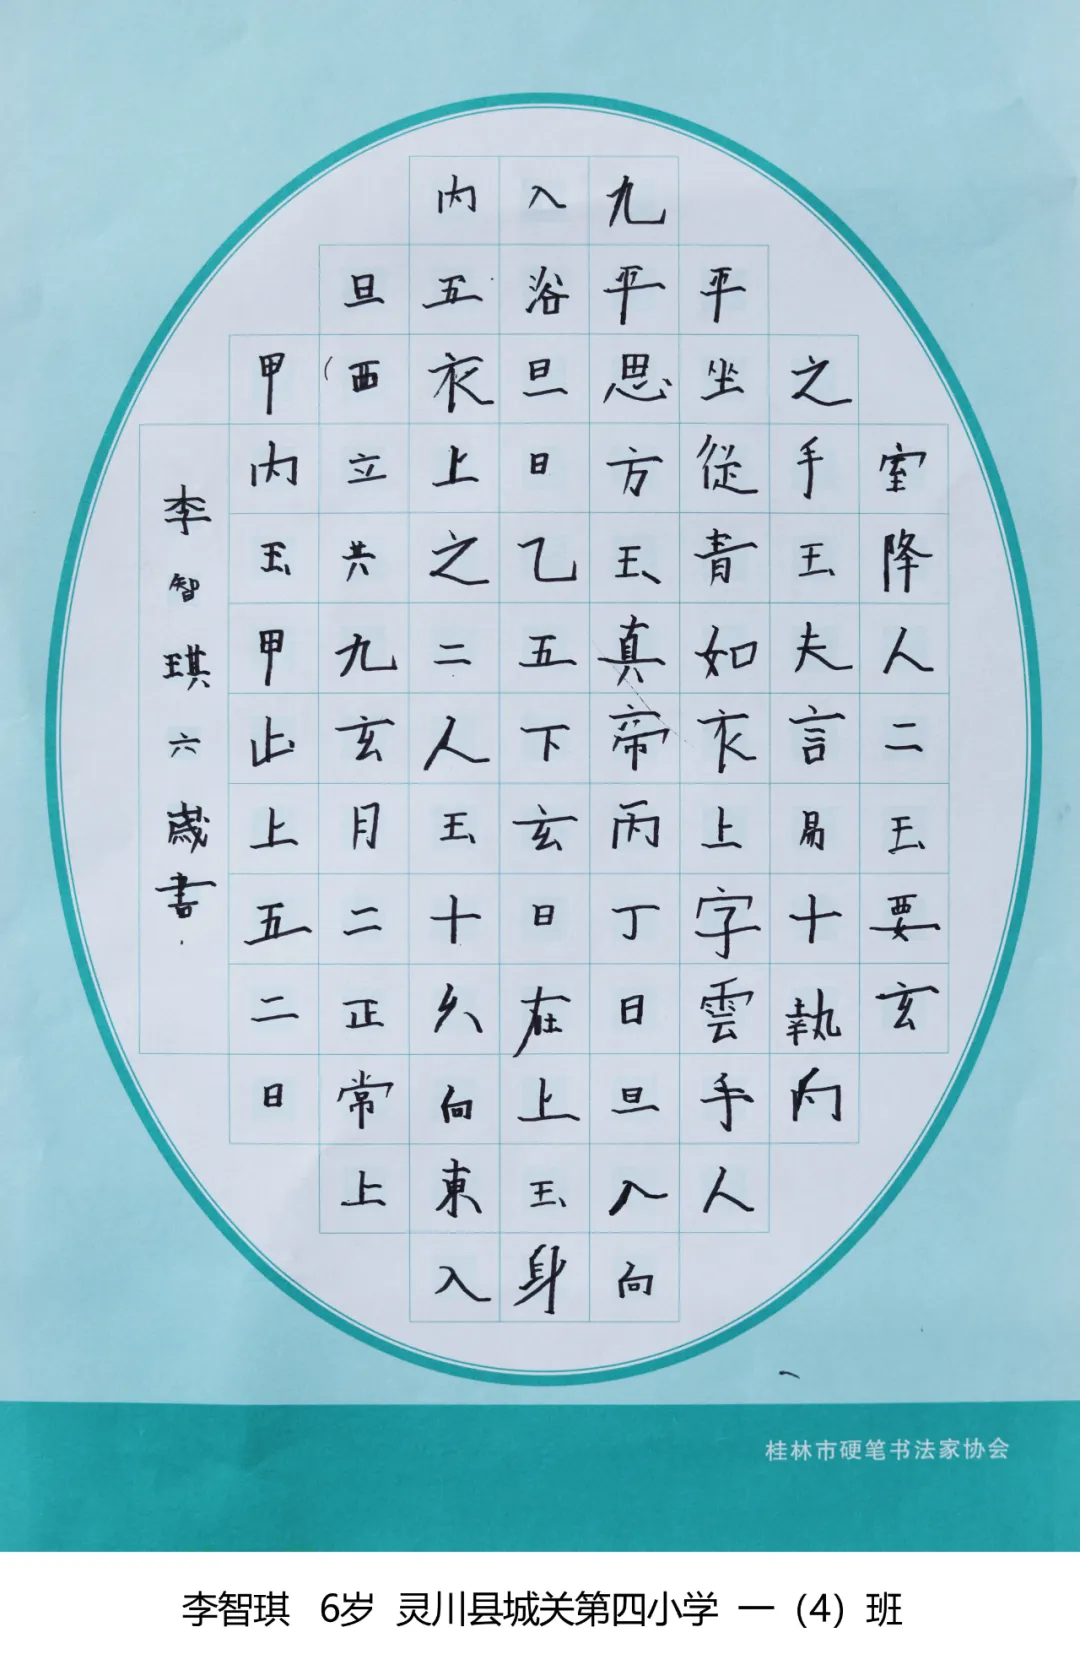 室降人二玉要玄
之手王夫言易十執内
平坐從青如衣上字雲手人
九平思方玉真帝丙丁日旦入向
入浴旦日乙五下玄日在上玉身
内五衣上之二人玉十久向東入
旦西立共九玄月二正常上
甲内玉甲止上五二日
李智琪六歲書
桂林市硬笔书法家协会
李智琪 6岁 灵川县城关第四小学 一（4）班